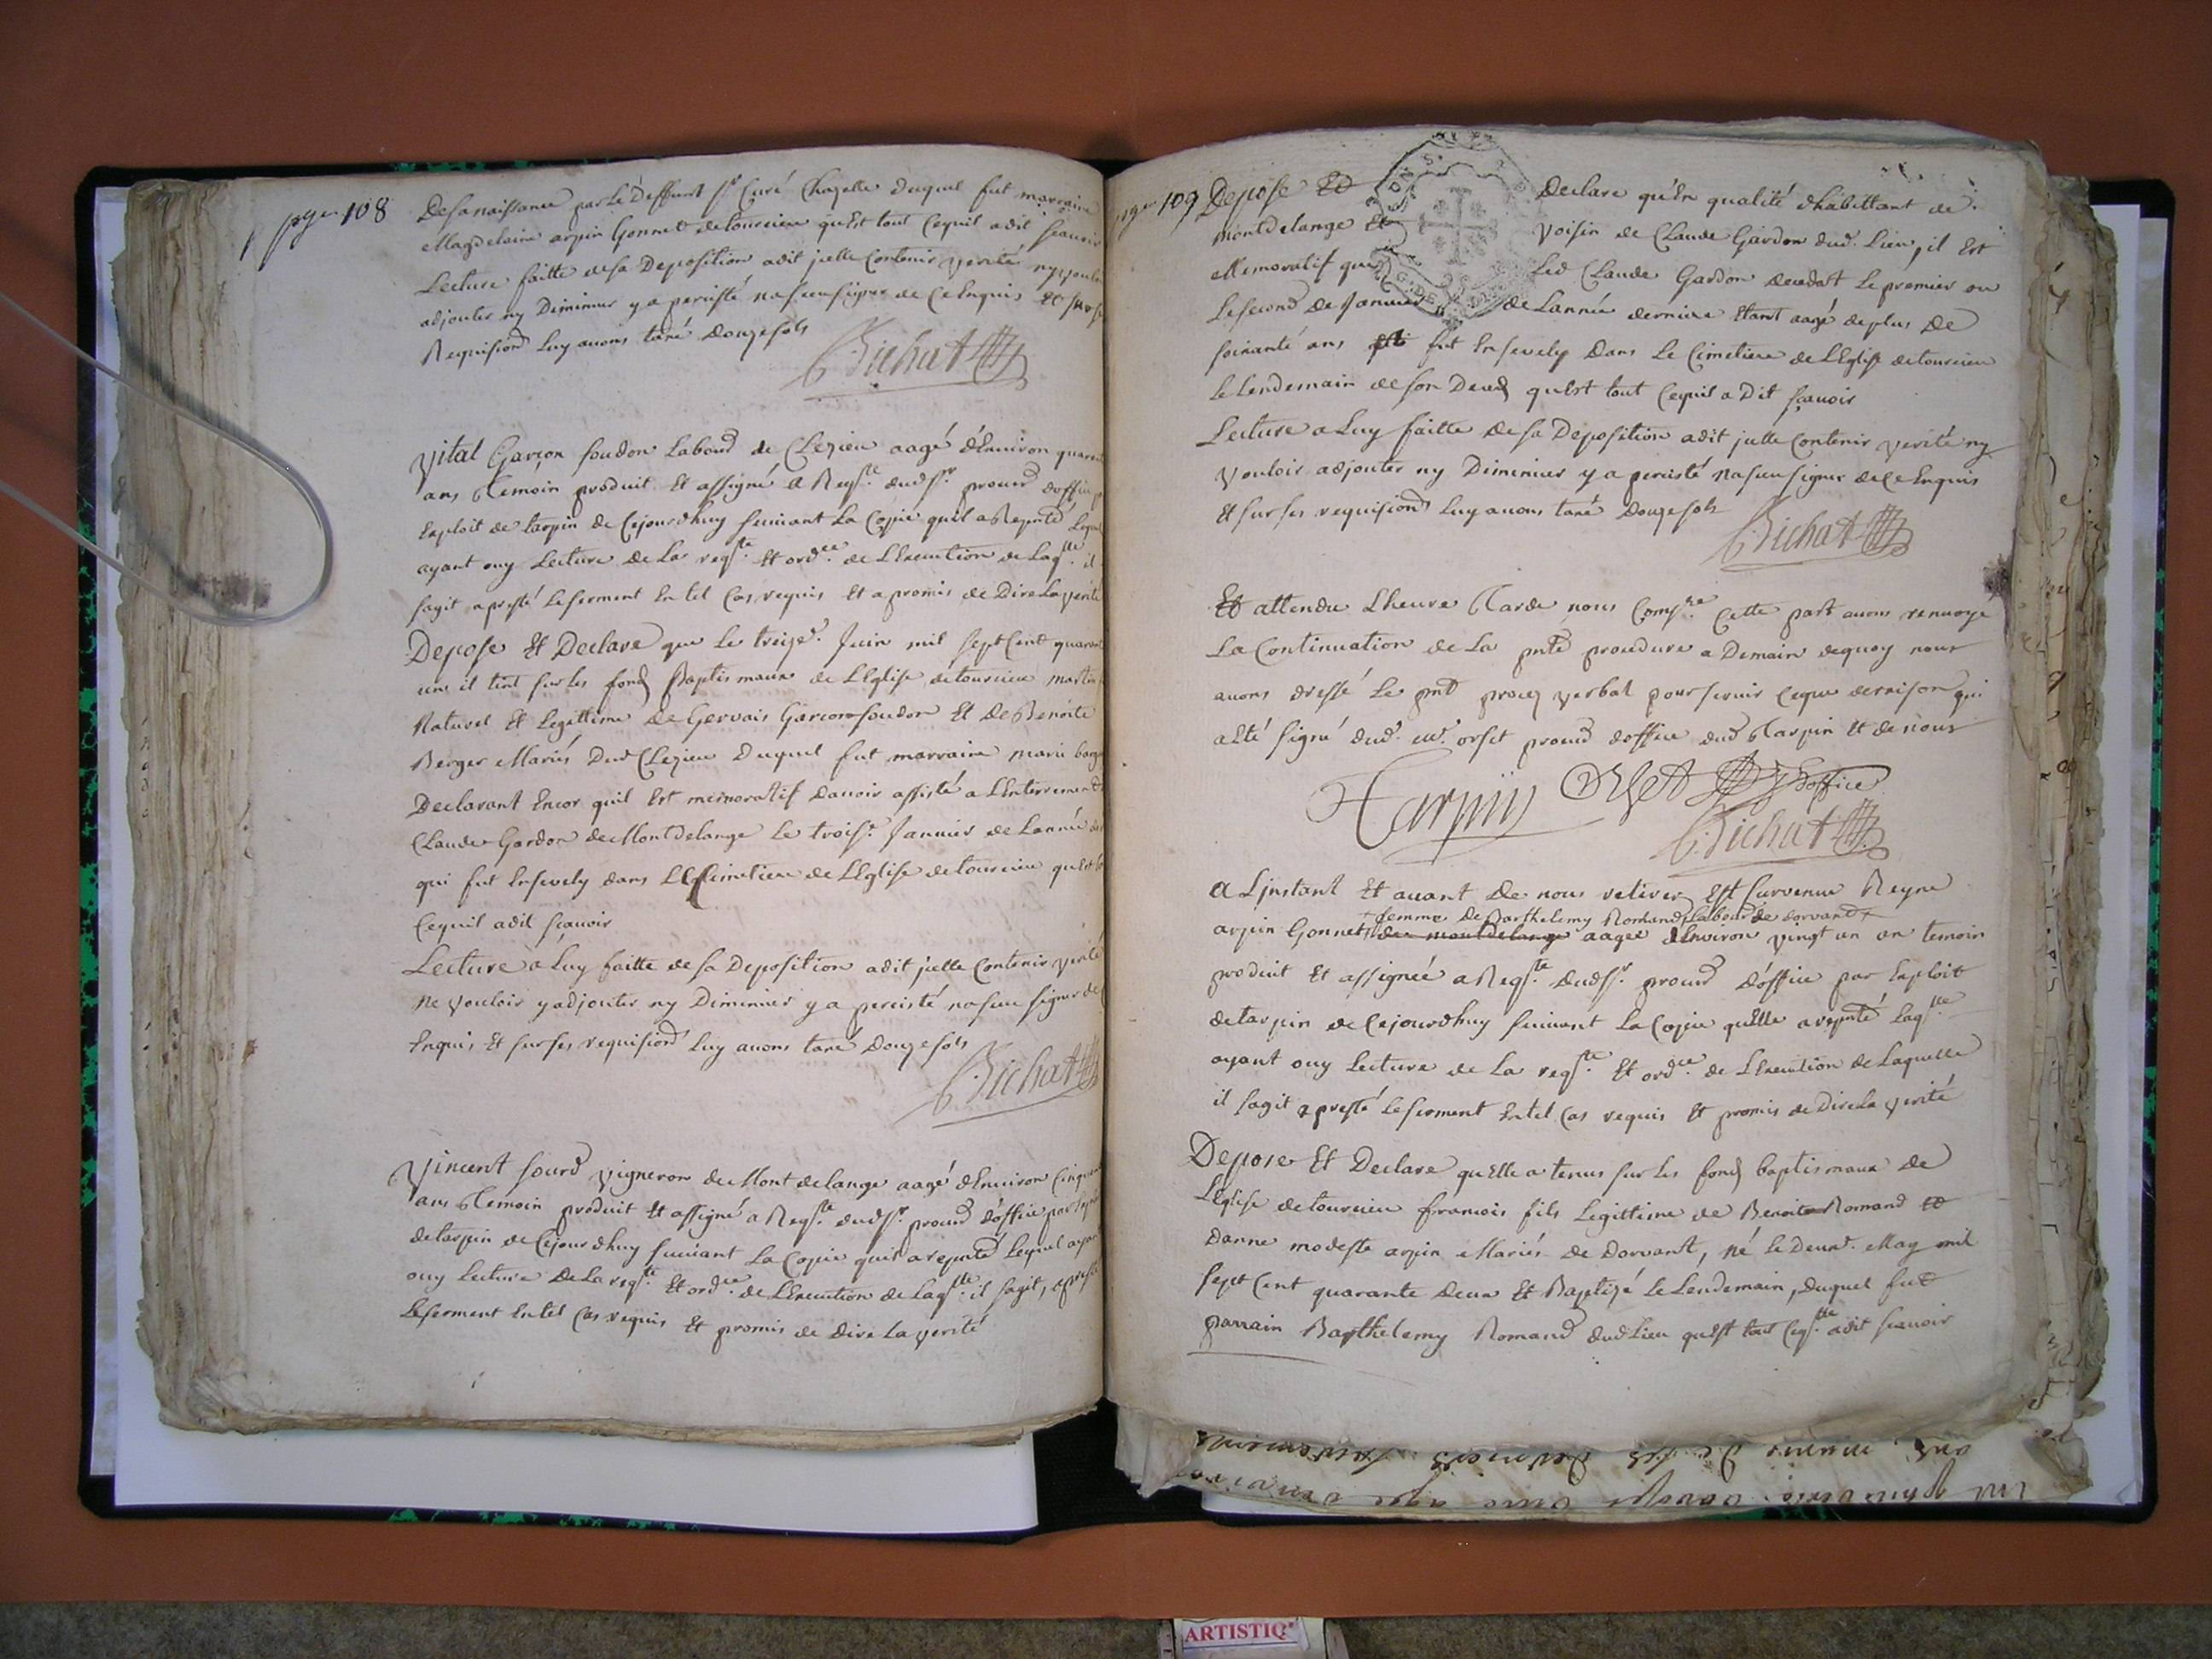 page 108
De sa naissance par Le Deffunt Sr Curé Chazelle duquel fut marraine
Magdelaine arpin Gonnet de tourcieu qu'Est tout Cequil a dit scavoir
Lecture faitte de sa Deposition a dit jcelle Contenir verité ny vouloir
adjouter ny Diminuer y a percisté na sceu signer de Ce Enquis Et sur ses
Requisiond Luy avons taxé Douze sols
Bichat
Vital Garçon soudon Laboud de Clezieu aagé d'Environ quarante
ans Temoin produit Et assigné a Reqste dud sr procurd doffice
Exploit de tarpin de Cejourdhuy suivant La Copie quil a Repntée Lequel
ayant ouy Lecture de La reqste Et ordce de L'Execution de Laqlle il
sagit a presté Le serment En tel Cas requis Et a promis de Dire La verité
Depose Et Declare que Le treize Juin mil sept Cent quarante
un il tint sur Les fonds Baptismaux de L'Eglise de tourcieu martin
Naturel Et Legittime de Gervais Garcon soudon Et de Benoite
Berger Mariés Dud Clezieu Duquel fut marraine marie
Declarant Encor quil Est memoratif davoir assisté a L'Enterrement
Claude Gardon de Montdelange Le troise Janvier de Lannée
qui fut Ensevely dans Le Cimetiere de L'Eglise de tourcieu qu'Est
Cequil a dit scavoir
Lecture a Luy faitte de sa Deposition a dit jcelle Contenir verité
Ne vouloir y adjouter ny Diminuer y a percisté na sceu signer de
Enquis Et sur ses requisiond Luy avons taxé Douze sols
Bichat
Vincent sourd Vigneron de Montdelange aagé d'Environ Cinquante
ans Temoin produit Et assigné a Reqste dud sr procurd d'office par Exploit
de tarpin de Cejourdhuy suivant La Copie quil a repntée Lequel ayant
ouy Lecture De La reqste Et ordce de L'Execution de Laqlle il sagit, a presté
Le serment En tel Cas requis Et promis de dire La verité
page 109
Depose Et Declare qu'En qualité d'habittant de
montdelange Et Voisin de Claude Gardon dud. Lieu, il Est
Memoratif que Led Claude Gardon deceda Le premier ou
Le second De Janvier de Lannée derniere Etant aagé de plus De
soixante ans fut Ensevely Dans Le Cimetiere de L'Eglise de tourcieu
Le Lendemain de son Deced qu'Est tout Cequil a Dit scavoir
Lecture a Luy faitte De sa Deposition a dit jcelle Contenir verité ny
vouloir adjouter ny Diminuer y a percisté na sceu signer de Ce Enquis
Et sur ses requisiond Luy avons taxé Douze sols
Bichat
Et attendu L'heure Tarde nous Comre Cette part avons renvoyé
La Continuation de La pnte procedure a Demain dequoy nous
avons dressé Le pnt proces verbal pour servir Ceque de raison qui
a Eté signé dud. me. orset procurd doffice dud Tarpin Et de nous
Tarpin Orset doffice
Bichat
A L'jnstant Et avant De nous retirer Est survenue Reyne
femme De Barthelemy Romand Laboud de dorvand
arpin Gonnet de montdelange aagée d'Environ vingt un an temoin
produit Et assignée a Reqste dud sr procurd d'office par Exploit
de tarpin de Cejourdhuy suivant La Copie qu'Elle a repnté Laqlle
ayant ouy Lecture de La reqste Et ordce de L'Execution de Laquelle
il sagit a presté Le serment En tel Cas requis Et promis de Dire La verité
Depose Et Declare qu'Elle a tenus sur Les fonds baptismaux de
L'Eglise de tourcieu francois fils Legittime de Benoit Romand Et
danne modeste arpin Mariés de dorvant, né Le Deuxe. May mil
sept Cent quarante Deux Et Baptizé Le Lendemain, duquel fut
parrain Barthelemy Romand dud Lieu qu'Est tout Ceqlle a dit scavoir
ARTISTIQ